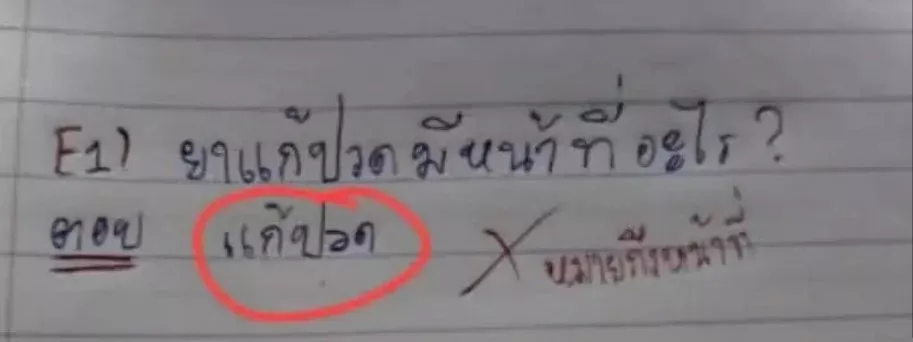 E1) ยาแก้ปวดมีหน้าที่อะไร?
ตอบ แก้ปวด
หมายถึงหน้าที่